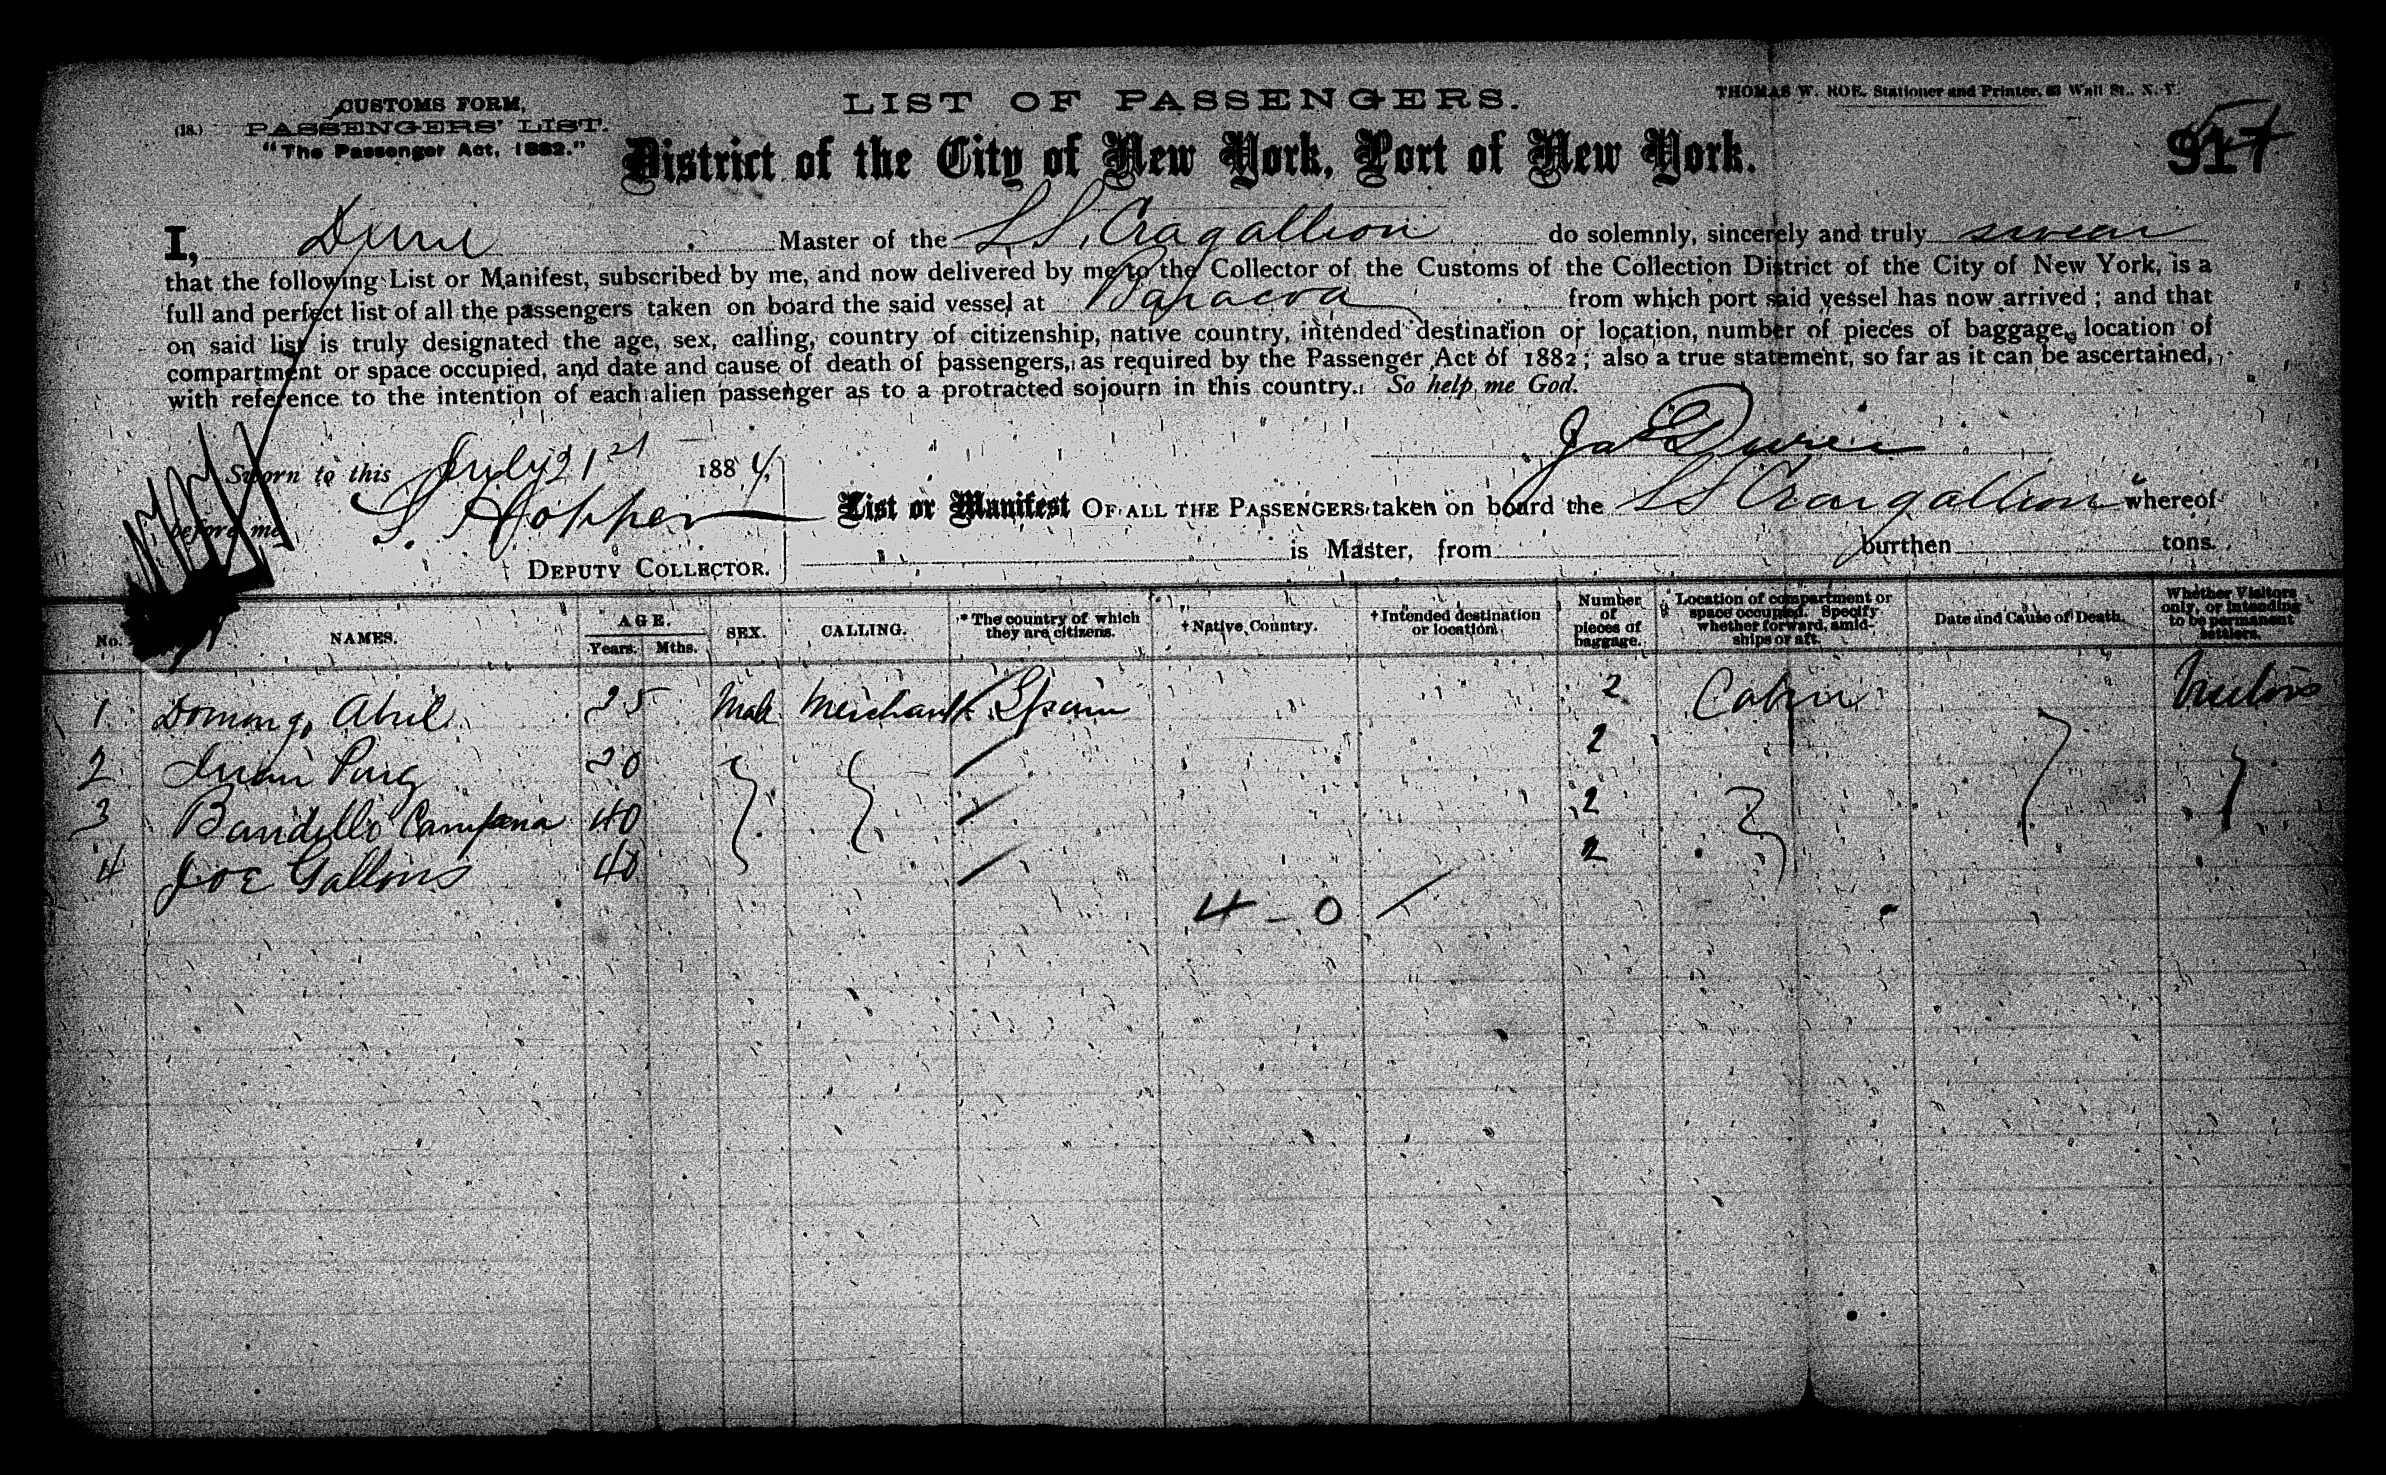 CUSTOMS FORM.
(18.) PASSENGERS' LIST.
"The Passenger Act, 1882."
LIST OF PASSENGERS.
THOMAS W. ROE, Stationer and Printer, Wall St., N. Y.
District of the City of New York, Port of New York.
917
I, Master of the S.S. Cragallion do solemnly, sincerely and truly swear
that the following List or Manifest, subscribed by me, and now delivered by me to the Collector of the Customs of the Collection District of the City of New York, is a
full and perfect list of all the passengers taken on board the said vessel at Baracoa from which port said vessel has now arrived; and that
on said list is truly designated the age, sex, calling, country of citizenship, native country, intended destination or location, number of pieces of baggage, location of
compartment or space occupied, and date and cause of death of passengers, as required by the Passenger Act of 1882; also a true statement, so far as it can be ascertained,
with reference to the intention of each alien passenger as to a protracted sojourn in this country. So help me God.
Sworn to this July 21st 1884
before me
S. Hopper
DEPUTY COLLECTOR.
List or Manifest OF ALL THE PASSENGERS taken on board the SS Craigallion whereof
is Master, from burthen tons.
No. NAMES. AGE. Years. Mths. SEX. CALLING. * The country of which they are citizens. † Native Country. † Intended destination or location. Number of pieces of baggage. Location of compartment or space occupied. Specify whether forward, amidships or aft. Date and Cause of Death. Whether Visitors only, or intending to be permanent settlers.
1 Abril 25 Male Merchant Spain 2 Cabin Visitors
2 Juan Puig 20 2
3 Campana 40 2
4 Joe Gallons 40 2
4 - 0